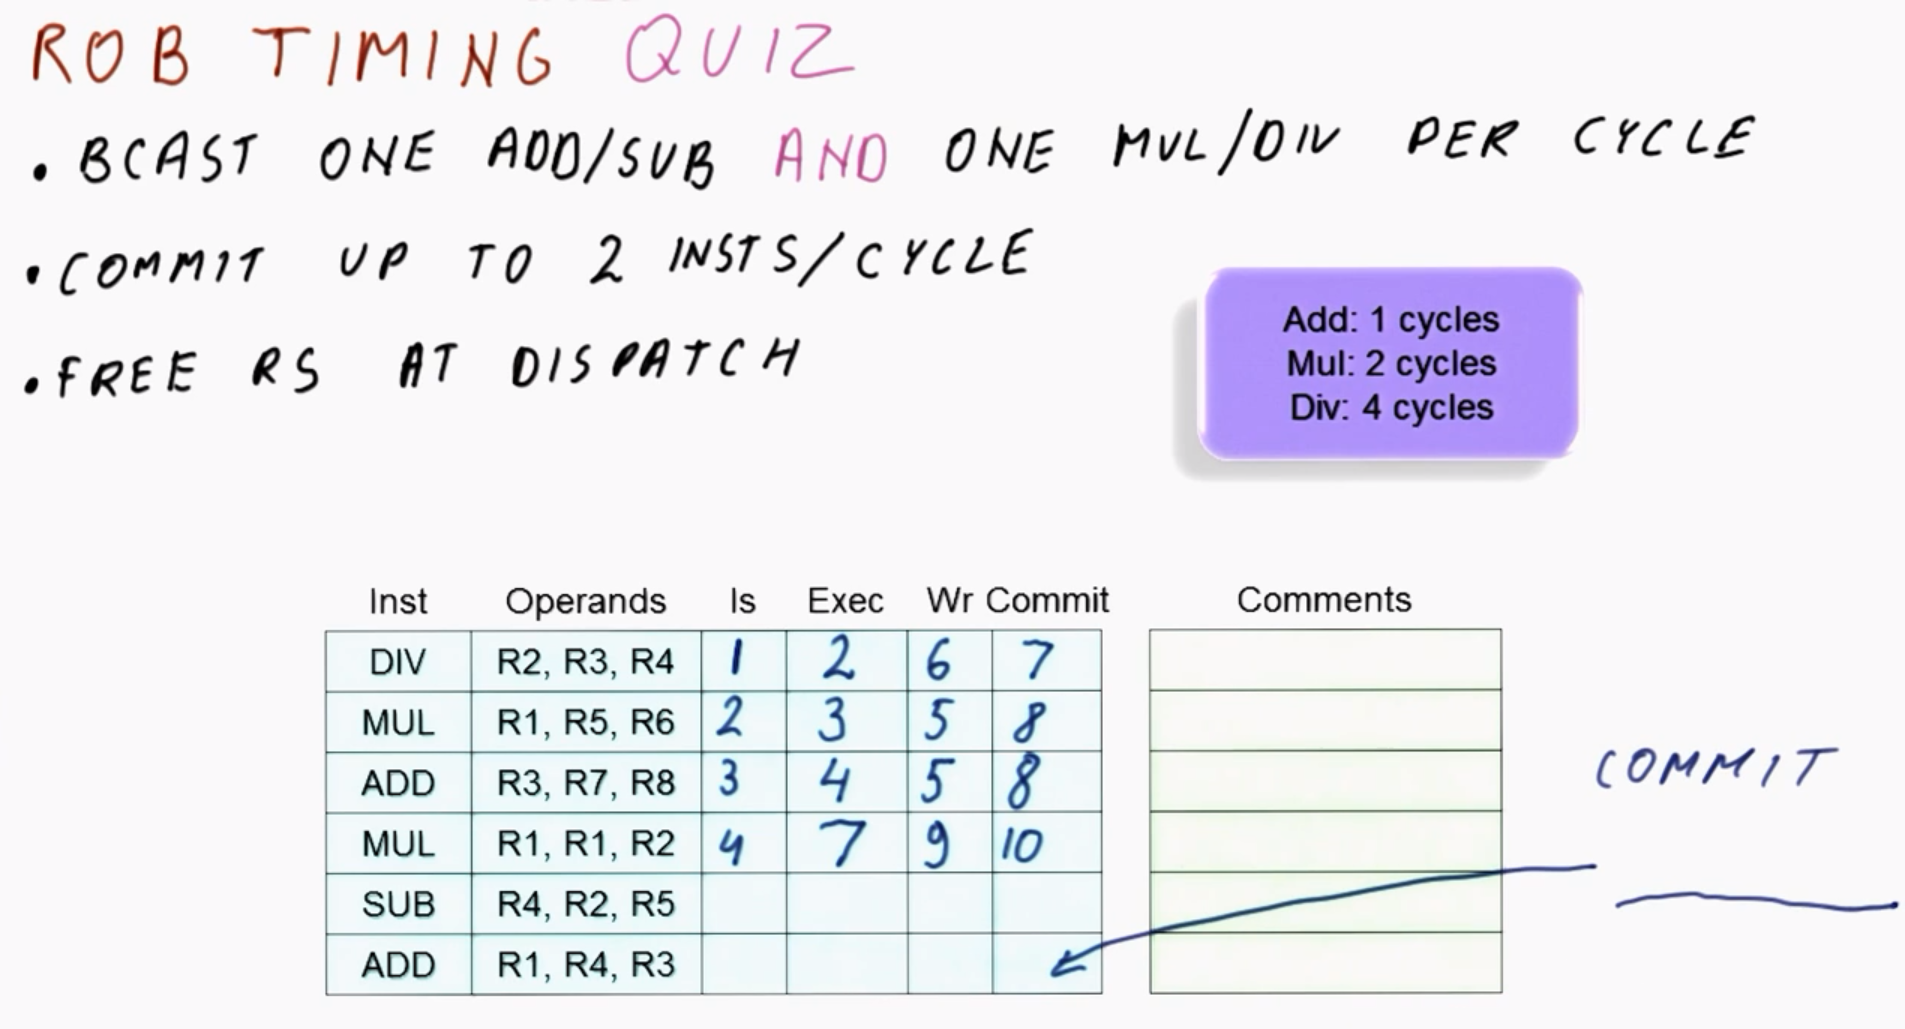 ROB TIMING QUIZ
• BCAST ONE ADD/SUB AND ONE MUL/DIV PER CYCLE
• COMMIT UP TO 2 INSTS/CYCLE
• FREE RS AT DISPATCH
Add: 1 cycles
Mul: 2 cycles
Div: 4 cycles
Inst Operands Is Exec Wr Commit Comments
DIV R2, R3, R4 1 2 6 7
MUL R1, R5, R6 2 3 5 8
ADD R3, R7, R8 3 4 5 8
MUL R1, R1, R2 4 7 9 10
SUB R4, R2, R5
ADD R1, R4, R3
COMMIT